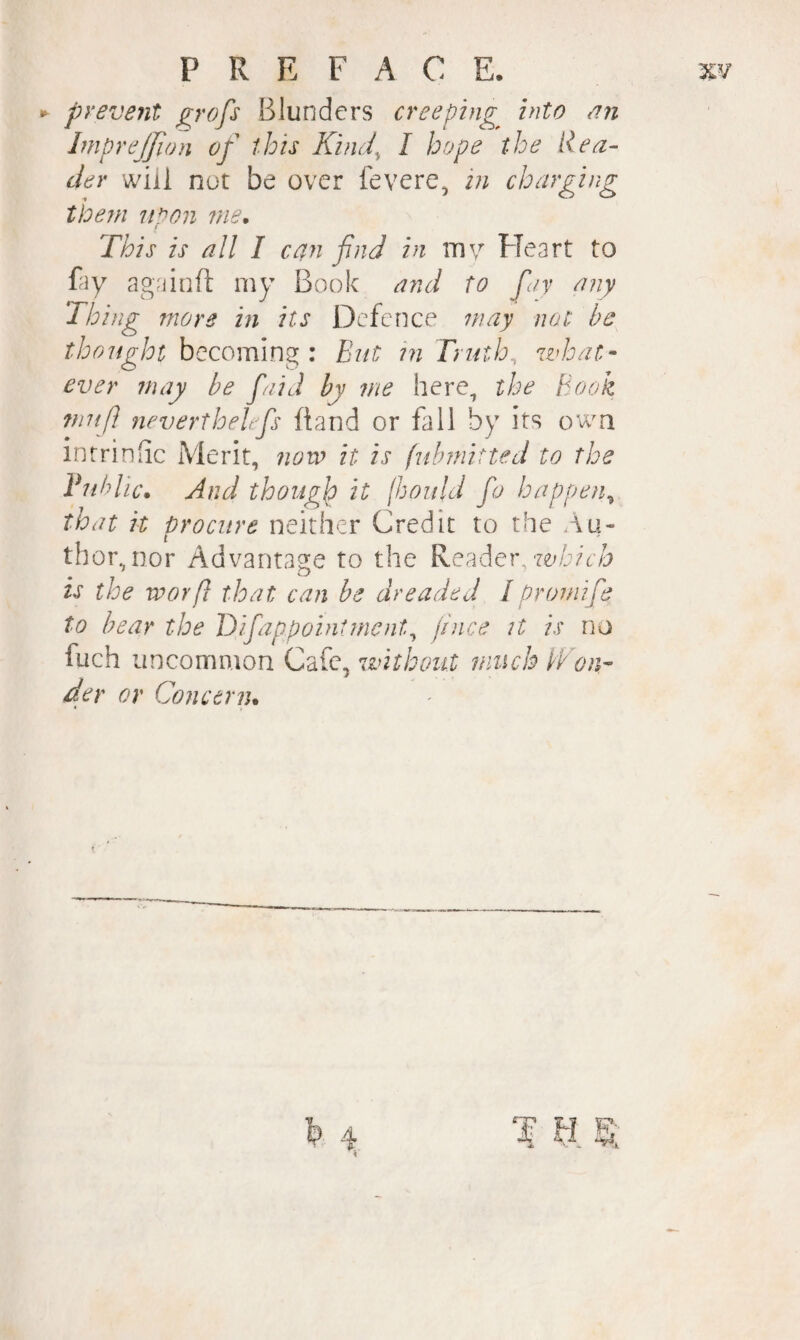 PREFACE. xv
prevent groſs Blunders creeping into an
Impreſſion of this Kind, I hope the Rea-
der will not be over ſevere, in charging
them upon me.
This is all I can find in my Heart to
ſay againſt my Book and to ſay any
Thing more in its Defence may not be
thought becoming : But in Truth, what-
ever may be ſaid by me here, the Book
muſt nevertheleſs ſtand or fall by its own
intrinſic Merit, now it is ſubmitted to the
Public. And though it ſhould ſo happen,
that it procure neither Credit to the Au-
thor, nor Advantage to the Reader, which
is the worſt that can be dreaded I promiſe
to bear the Diſappointment, ſince it is no
ſuch uncommon Caſe, without much Won-
der or Concern.
b 4 THE